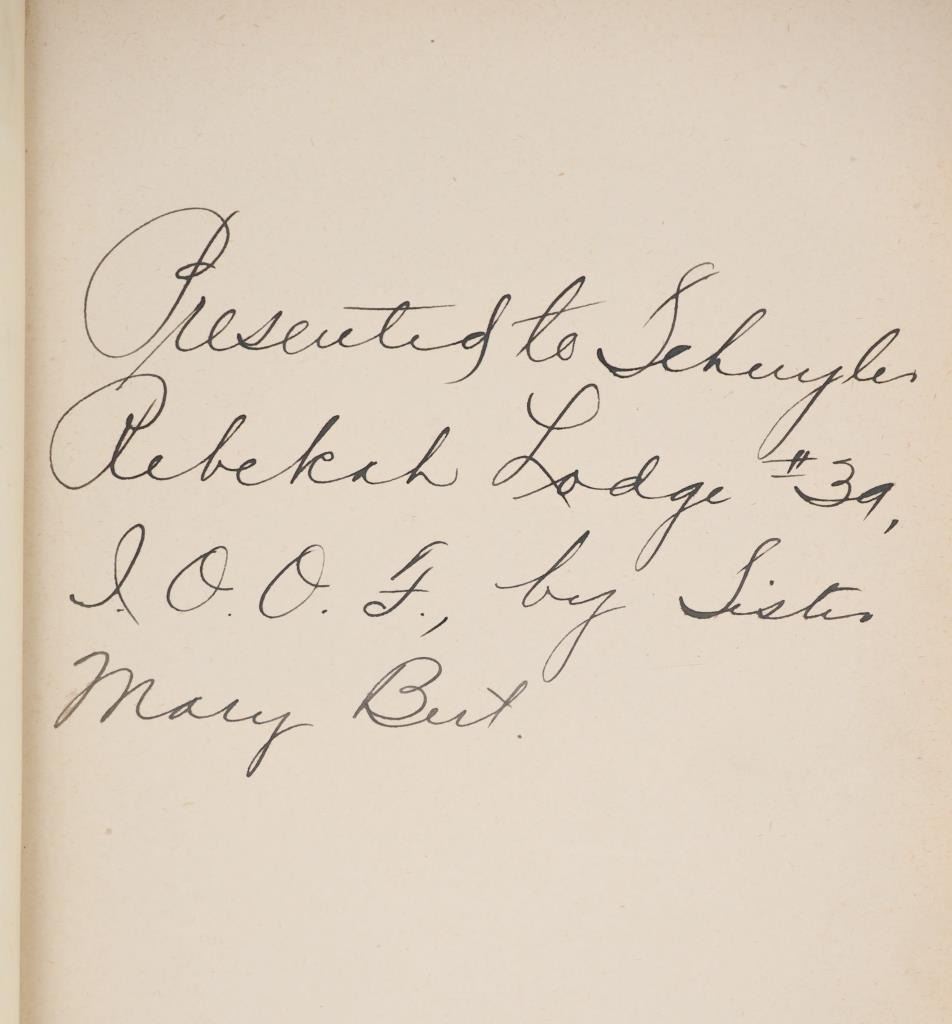 Presented to Schuyler
Rebekah Lodge #39,
I. O. O. F., by Sister
Mary Bert.